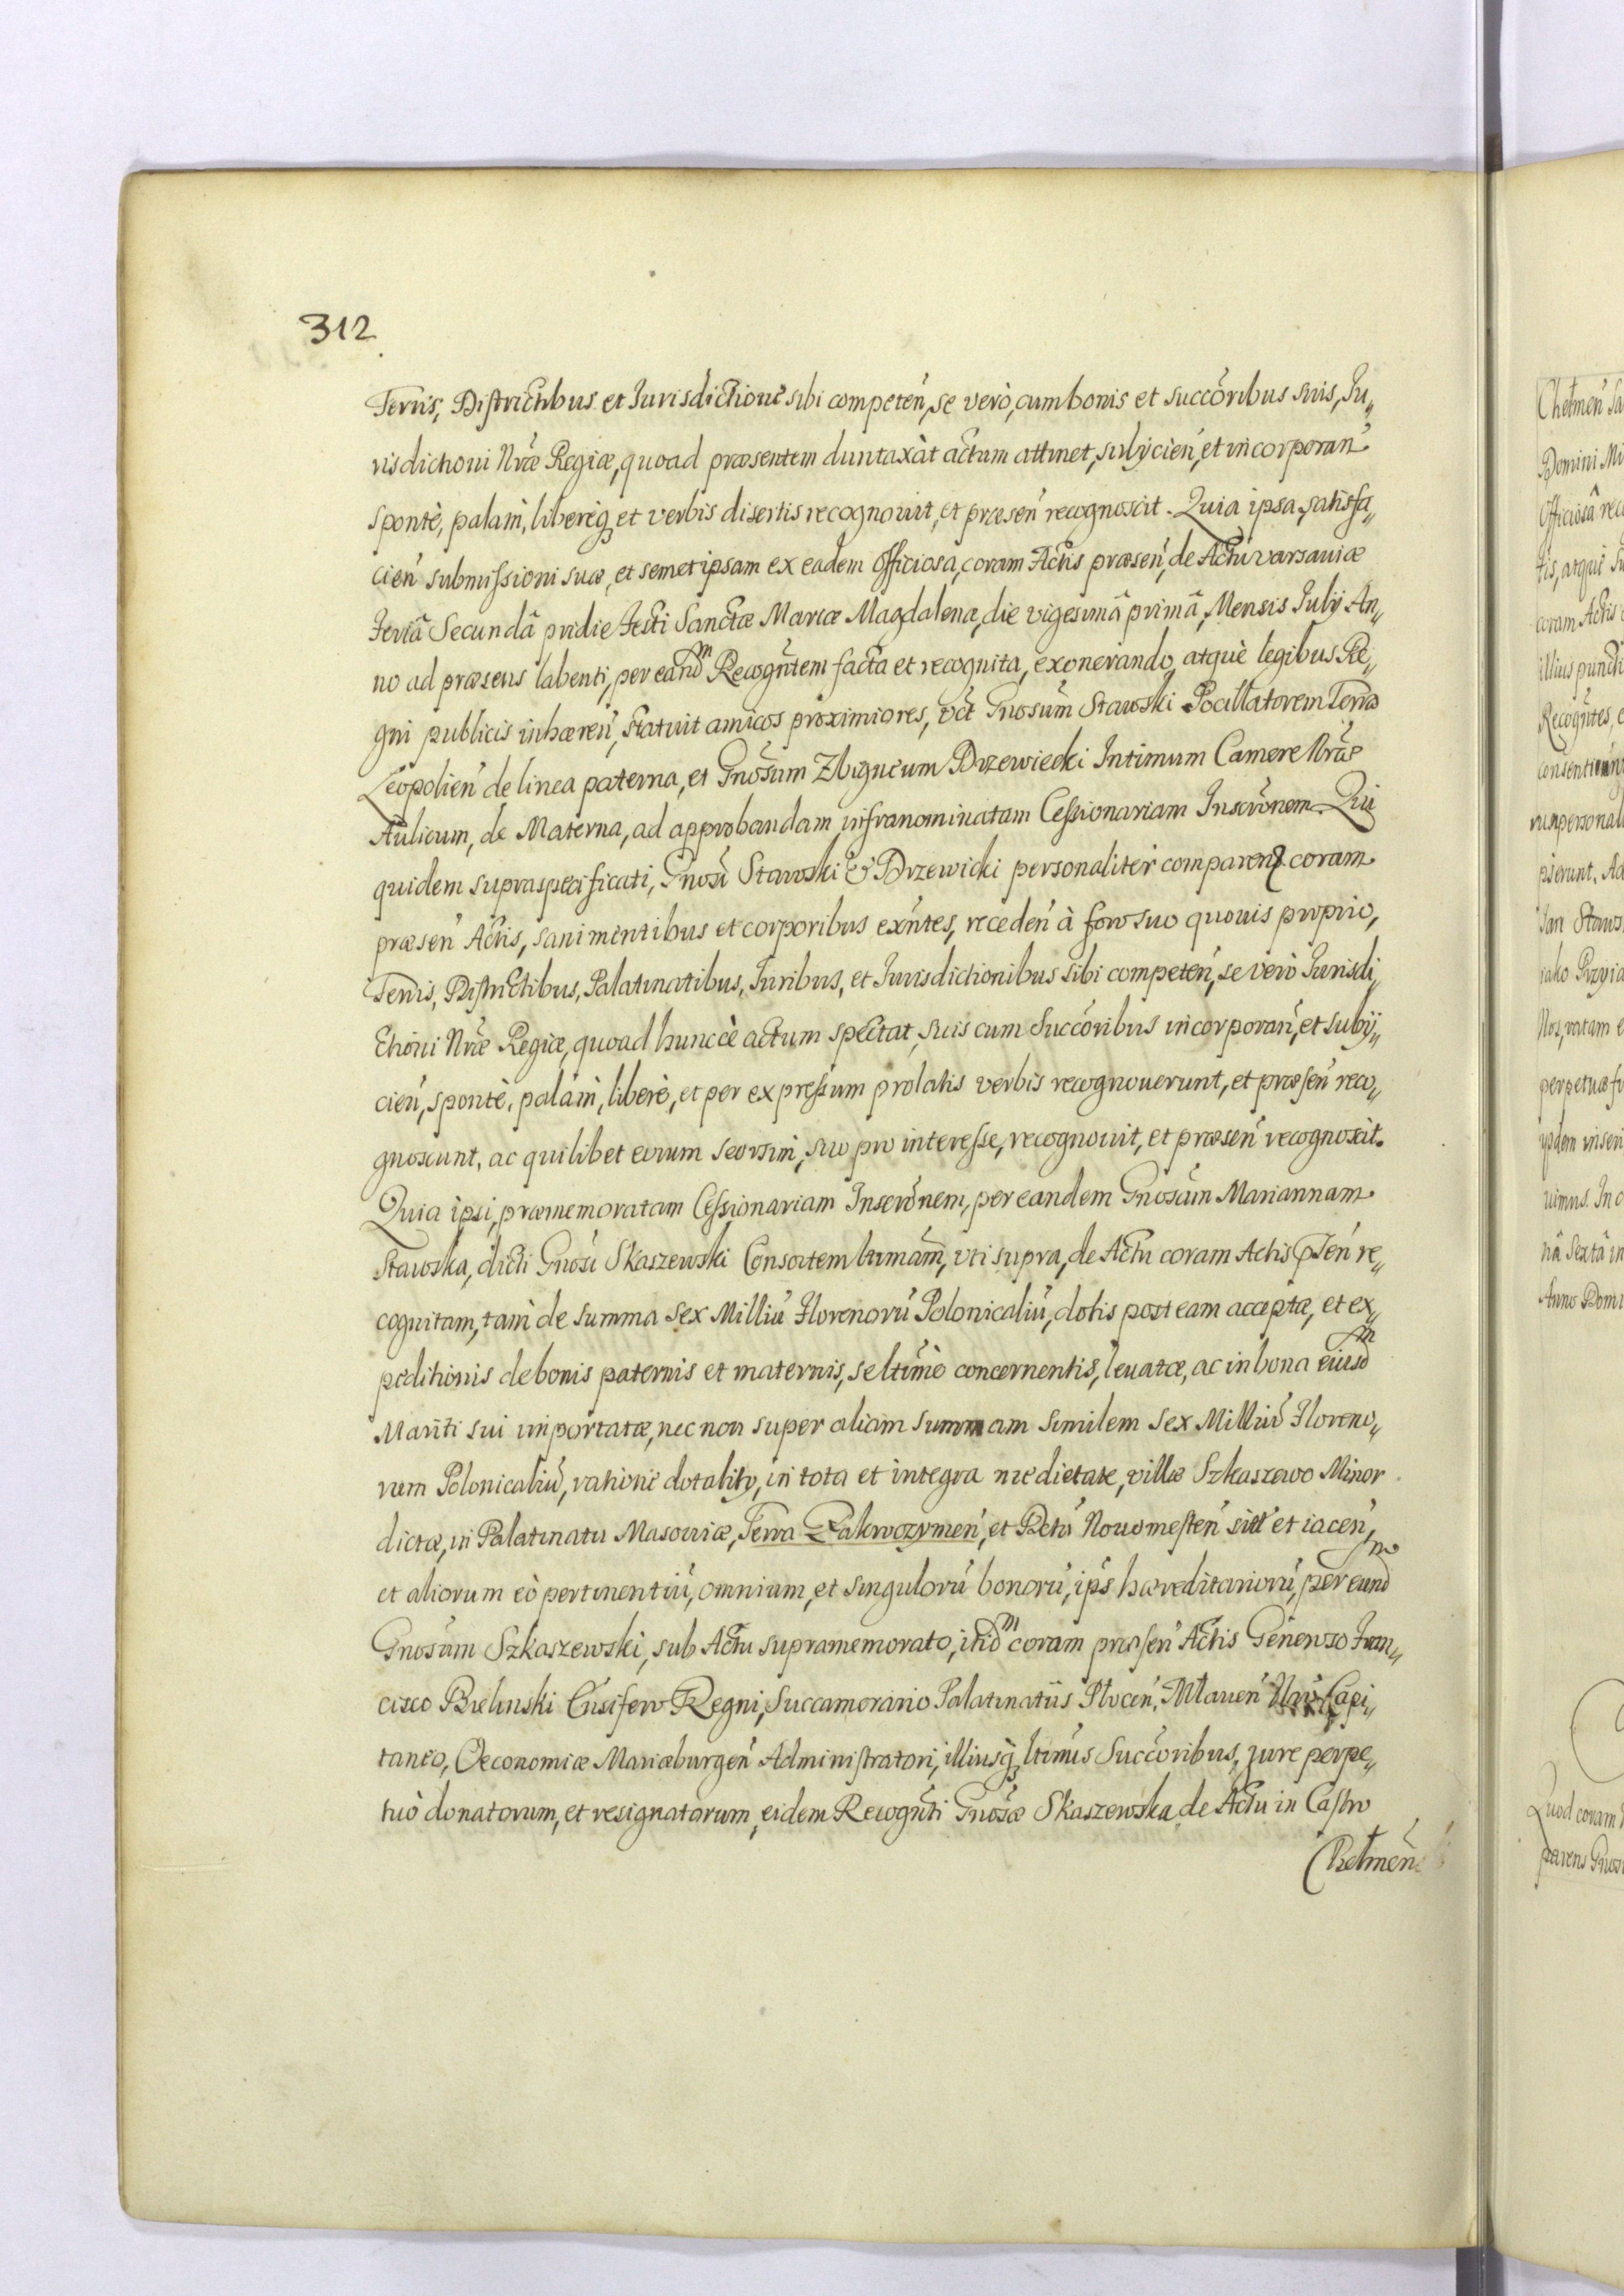 312
Terris, Districtibus et Jurisdictione sibi competeñ, se verò, cum bonis et succ̃oribus suis, Ju„
risdictioni Nr̃æ Regiæ, quoad præsentem duntaxàt actum attinet, subijcieñ, et incorporañ
spontè, palam̀, liberèq; et verbis disertis recognouit, et præseñ recognoscit. Quia ipsa, satisfa„
cieñ submissioni suæ, et semetipsam ex eadem Officiosa, coram Actis præseñ, de Actu Varsauiæ
Feriâ Secundâ pridie Festi Sanctæ Mariæ Magdalenæ, die vigesimâ primâ, Mensis Julij An„
no ad præsens labenti, per eand̃m Recogñtem facta et recognita, exonerando, atquè legibus Re„
gni publicis inhæreñ, statuit amicos proximiores, vct Gnõsum Stawski Pocillatorem Terræ
Leopolieñ de linea paterna, et Gnõsum Zbigneum Drzewiecki Intimum Camere Nr̃æ
Aulicum, de Materna, ad approbandam infranominatam Cessionariam Inscr̃onem. Qui
quidem supraspecificati, Gnõsi Stawski & Drzewicki personalitèr comparen̄ coram
præseñ Actis, sani mentibus et corporibus exñtes, recedeñ à foro suo quouis proprio,
Terris, Districtibus, Palatinatibus, Juribus, et Jurisdictionibus sibi competeñ, se verò Jurisdi„
ctioni Nr̃æ Regiæ, quoad huncce actum spectat, suis cum Succ̃oribus incorporañ, et subij„
cieñ, spontè, palam̀, liberè, et per expressum prolatis verbis recognouerunt, et præseñ reco„
gnoscunt, ac quilibet eorum seorsim̀, suo pro interesse, recognouit, et præseñ recognoscit.
Quia ipsi, præmemoratam Cessionariam Inscr̃onem, per eandem Gnõsam Mariannam
Stawska, dicti Gnõsi Skaszewski Consortem ltimam̃, vti supra, de Actu coram Actis Pr̃señ re„
cognitam, tam̀ de summa Sex Milliũ Florenorũ Polonicaliũ, dotis post eam acceptæ, et ex„
peditionis de bonis paternis et maternis, se ltimè concernentis, leuatæ, ac in bona eiusd̃m
Mariti sui importatæ, nec non super aliam summam similem Sex Milliũ Floreno„
rum Polonicaliũ, ratione dotalitij, in tota et integra medietate, villæ Szkaszewo Minor
dictæ, in Palatinatu Masouiæ, Terra Zakroczymeñ, et Dctũ Nouomesteñ sitt̃ et iaceñ,
et aliorum eò pertinentiũ, omnium, et singulorũ bonorũ, ips̃ hæreditariorũ, per eund̃m
Gnõsum Szkaszewski, sub Actu supramemorato, itid̃m coram præseñ Actis Gẽneroso Fran„
cisco Bielinski Ensifero Regni, Succamerario Palatinatũs Płoceñ, Mławeñ Nrõ Capi„
taneo, Oeconomiæ Mariæburgeñ Administratori, illiusq; ltimis Succ̃oribus, jure perpe„
tuò donatorum, et resignatorum, eidem Recogñti Gnõsæ Skaszewska, de Actu in Castro
Chełmeñ